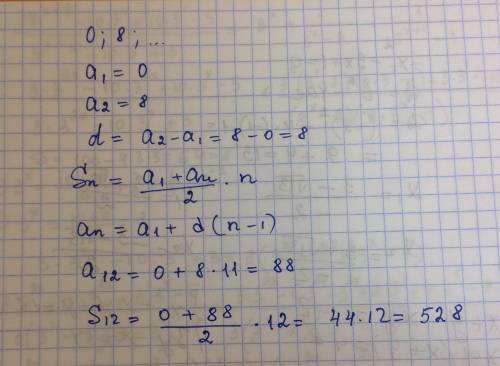 0; 8; ...
a₁ = 0
a₂ = 8
d = a₂ - a₁ = 8 - 0 = 8
Sn = (a₁ + an)/2 · n
an = a₁ + d(n-1)
a₁₂ = 0 + 8·11 = 88
S₁₂ = (0 + 88)/2 · 12 = 44·12 = 528